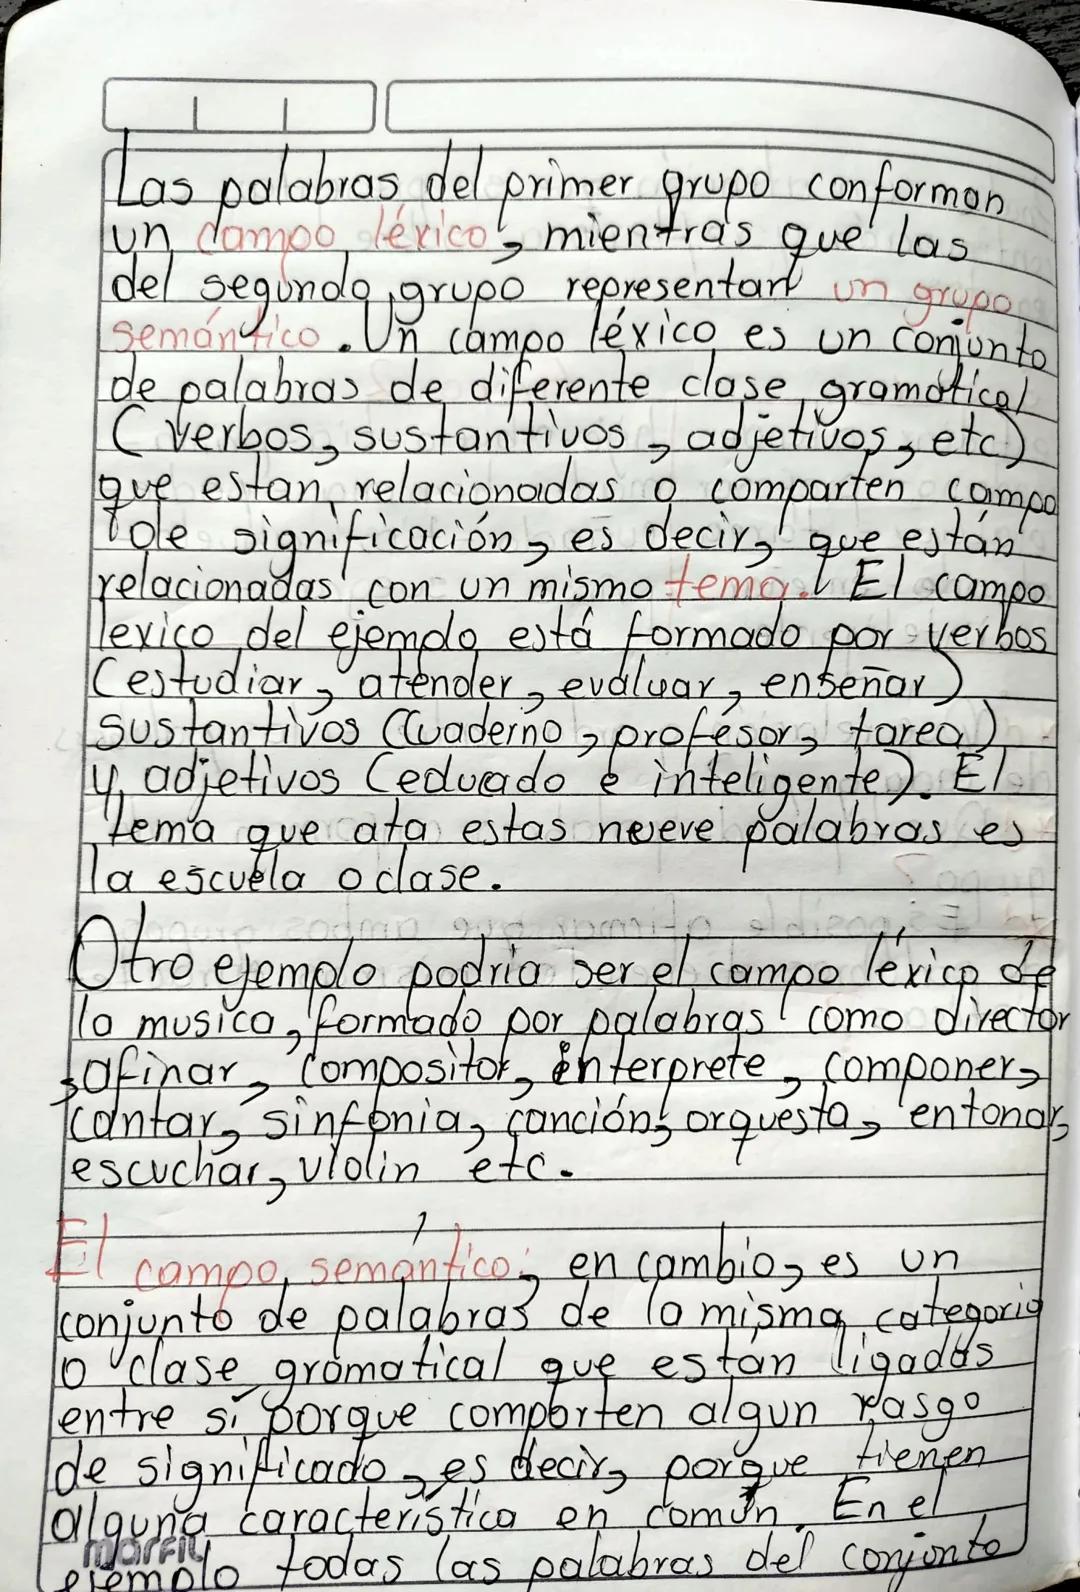 Las palabras del primer grupo conforman
un campo léxico, mientras que las
del segundo grupo representan un grupo
semántico. Un campo léxico es un conjunto
de palabras de diferente clase gramatical
(verbos, sustantivos, adjetivos, etc)
que estan relacionadas o comparten campo
de significación, es decir, que están
relacionadas con un mismo tema. El campo
lexico del ejemplo está formado por verbos
(estudiar, atender, evaluar, enseñar)
sustantivos (Cuaderno, profesor, tarea)
y adjetivos (educado e inteligente). El
tema que ata estas nueve palabras es
la escuela o clase.
Otro ejemplo podria ser el campo léxico de
la musica, formado por palabras como director
, afinar, compositor, interprete, componer,
cantar, sinfonia, canción, orquesta, entonar,
escuchar, violin etc.
El campo semántico, en cambio, es un
conjunto de palabras de la misma categoria
o clase gramatical que están ligadas
entre sí porque comparten algun rasgo
de significado, es decir, porque tienen
alguna característica en común. En el
marfil
ejemplo todas las palabras del conjunto